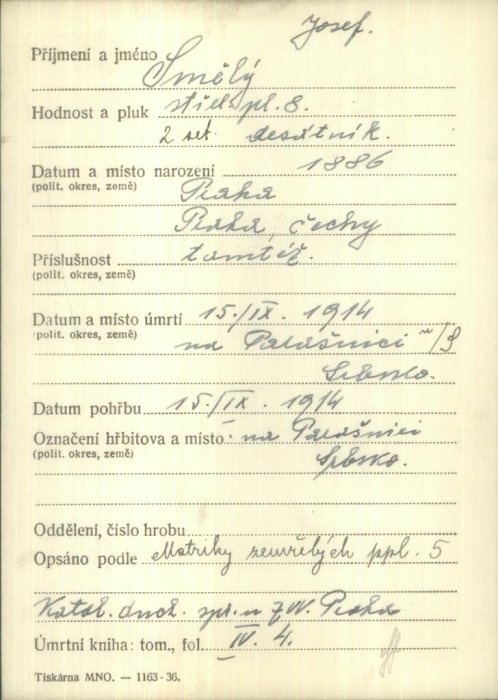 Josef.
Příjmení a jméno Smělý
Hodnost a pluk střel. pl. 8.
2 set. desátník.
Datum a místo narození 1886
(polit. okres, země) Praha
Praha, Čechy
Příslušnost tamtéž.
(polit. okres, země)
Datum a místo úmrtí 15./IX. 1914
(polit. okres, země) na Parašnici n/S
Srbsko.
Datum pohřbu 15./IX. 1914
Označení hřbitova a místo: na Parašnici
(polit. okres, země) Srbsko.
Oddělení, číslo hrobu
Opsáno podle Matriky zemřelých ppl. 5
Katol. duch. spr. u ZVV. Praha
Úmrtní kniha: tom., fol. IV. 4.
Tiskárna MNO. — 1163-36.